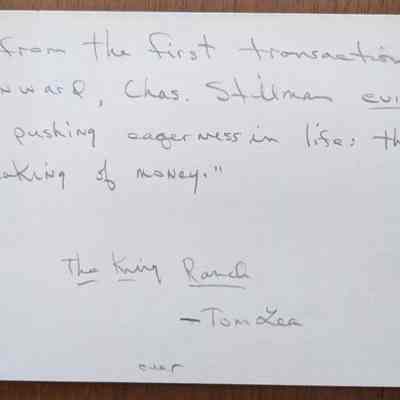 from the first transaction
nward, Chas. Stillman evi
pushing eagerness in life: th
aking of money."
The King Ranch
— Tom Lea
over